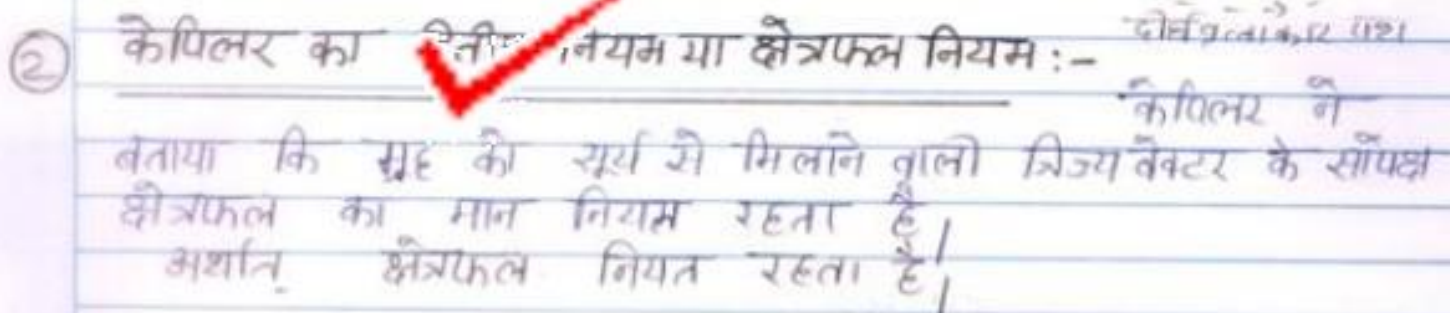 ② केपिलर का नियम या क्षेत्रफल नियम :-
केपिलर ने
बताया कि ग्रह को सूर्य से मिलाने वाली त्रिज्य वेक्टर के सापेक्ष
क्षेत्रफल का मान नियत रहता है।
अर्थात् क्षेत्रफल नियत रहता है।